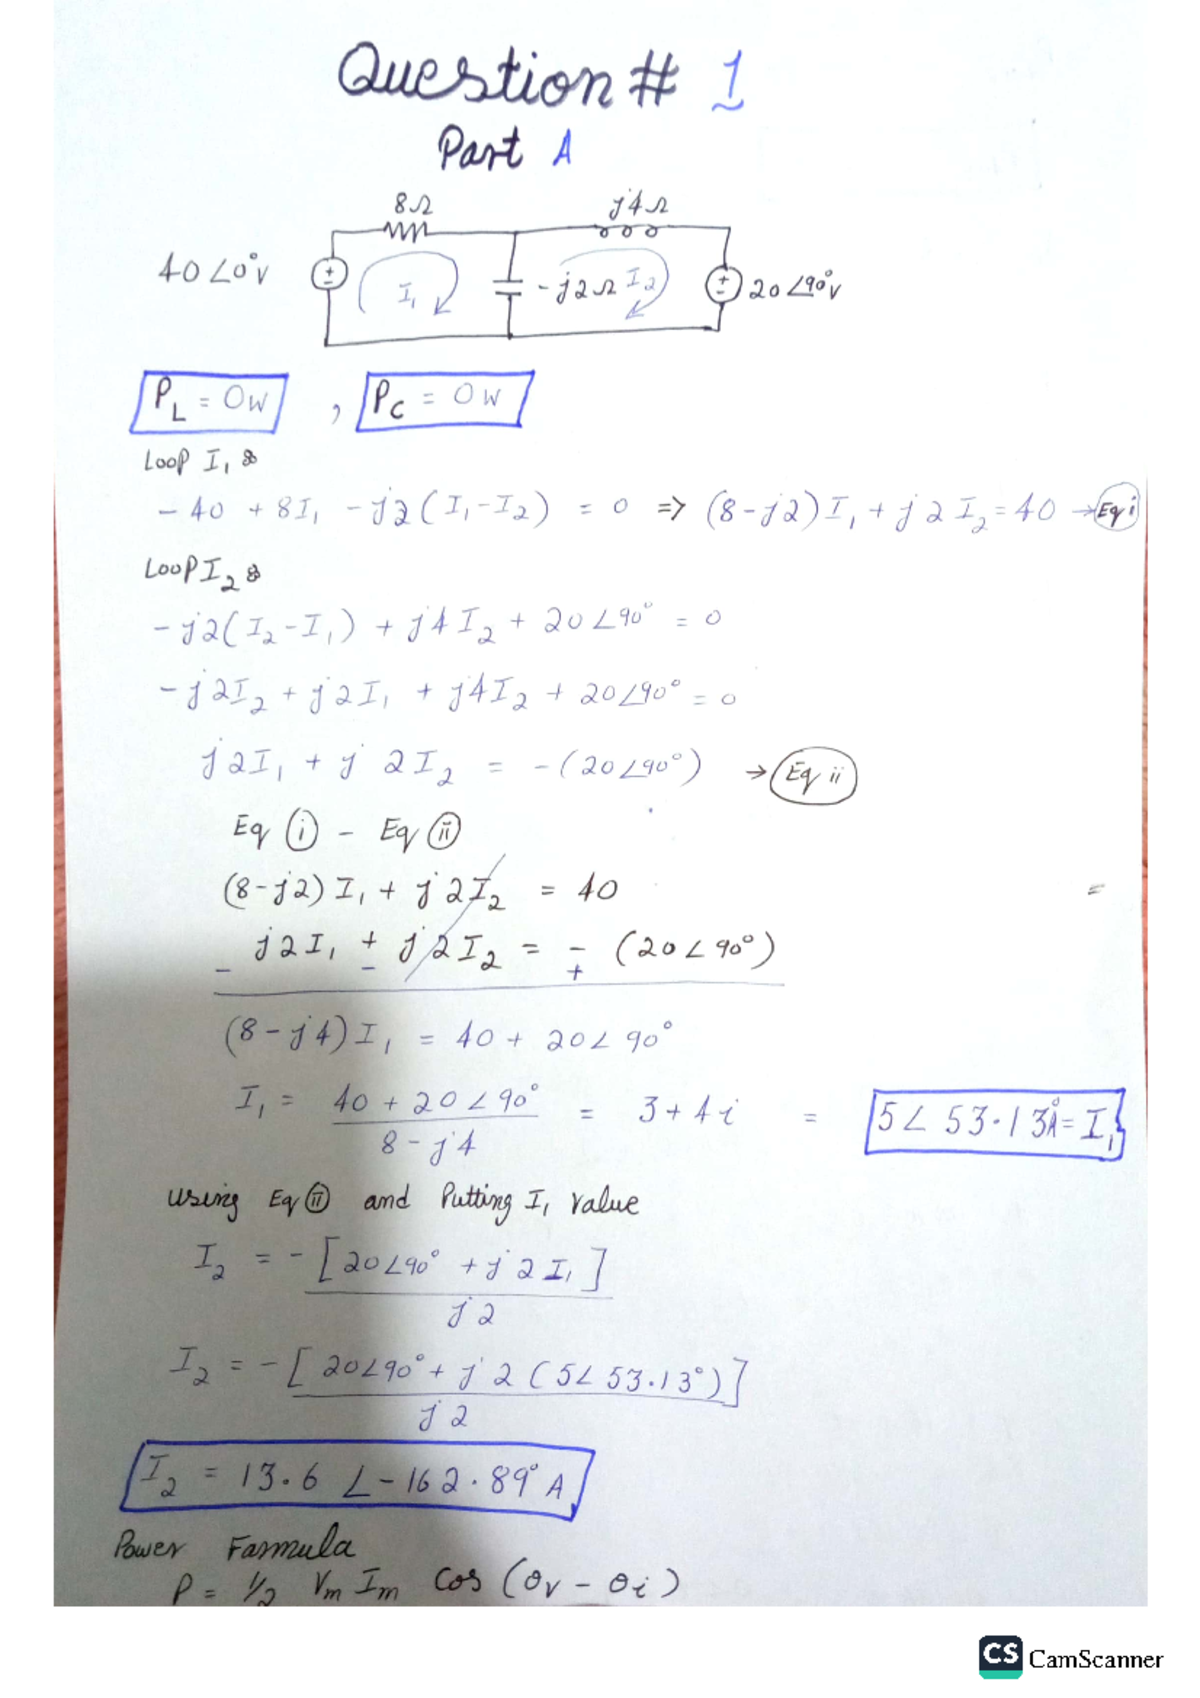 Question # 1
Part A
8Ω j4Ω
40∠0°V I₁ -j2Ω I₂ 20∠90°V
P_L = 0W , P_C = 0W
Loop I₁ :
- 40 + 8I₁ - j2(I₁-I₂) = 0 => (8-j2)I₁ + j2I₂ = 40 → Eq i
Loop I₂ :
- j2(I₂-I₁) + j4I₂ + 20∠90° = 0
- j2I₂ + j2I₁ + j4I₂ + 20∠90° = 0
j2I₁ + j2I₂ = -(20∠90°) → Eq ii
Eq (i) - Eq (ii)
(8-j2)I₁ + j2I₂ = 40 =
j2I₁ + j2I₂ = - (20∠90°)
- - +
(8-j4)I₁ = 40 + 20∠90°
I₁ = 40 + 20∠90° / 8-j4 = 3+4i = 5∠53.13°A = I₁
using Eq (ii) and Putting I₁ value
I₂ = -[20∠90° + j2I₁] / j2
I₂ = -[20∠90° + j2(5∠53.13°)] / j2
I₂ = 13.6 ∠-162.89° A
Power Farmula
P = 1/2 Vm Im cos (θv - θi)
CS CamScanner